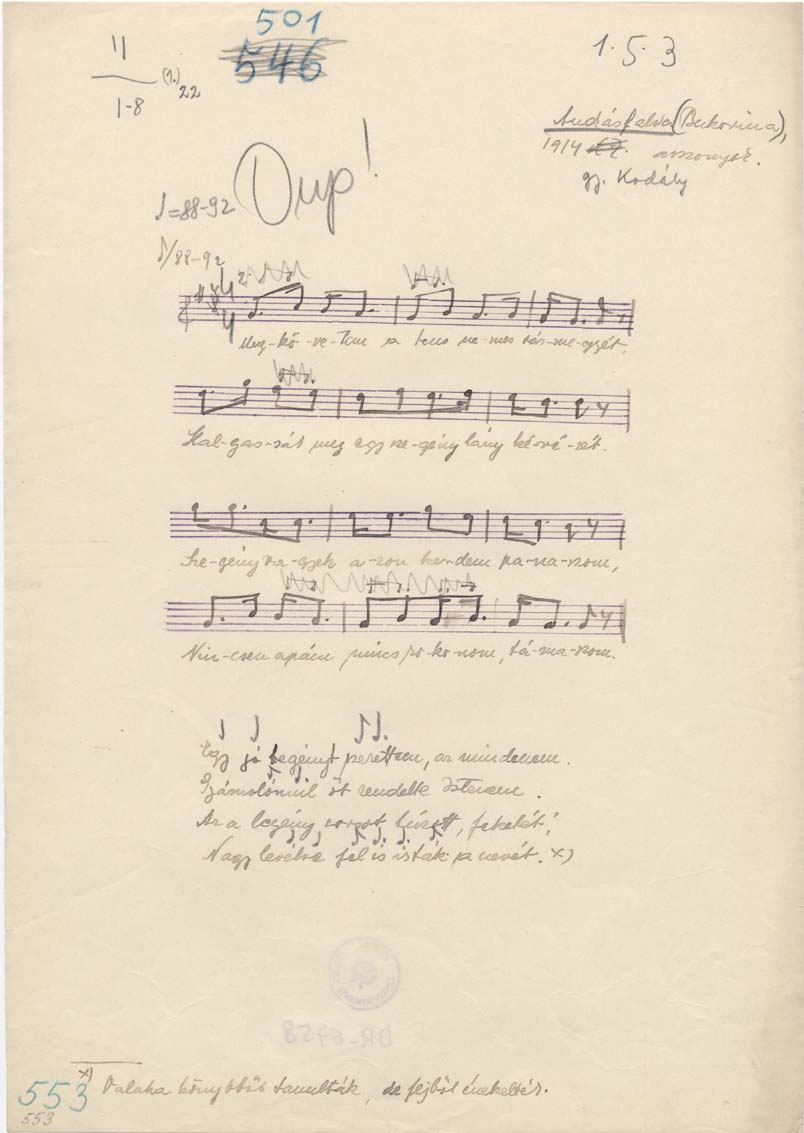 501
546
II
1-8
(1.) 22
1. 5. 3
Andrásfalva (Bukovina),
1914 asszonyok.
gy. Kodály
Dup!
♩=88-92
♪/88-92
Meg-kö-ve-tem a tens ne-mes vár-me-gyét,
Hal-gas-sát meg egy sze-gény lány ké-ré-sét.
Sze-gény va-gyok a-zon kez-dem pa-na-szom,
Nin-csen apám nincs ro-ko-nom, tá-ma-szom.
Egy jó legényt szerettem, az mindenem.
Gyámolómúl őt rendelte Istenem.
Az a legény sorsot húzott, feketét,
Nagy levélre fel is isták a nevét. x)
DR-6758
x) Valaha könyvből tanulták, de fejből énekelték.
553
553